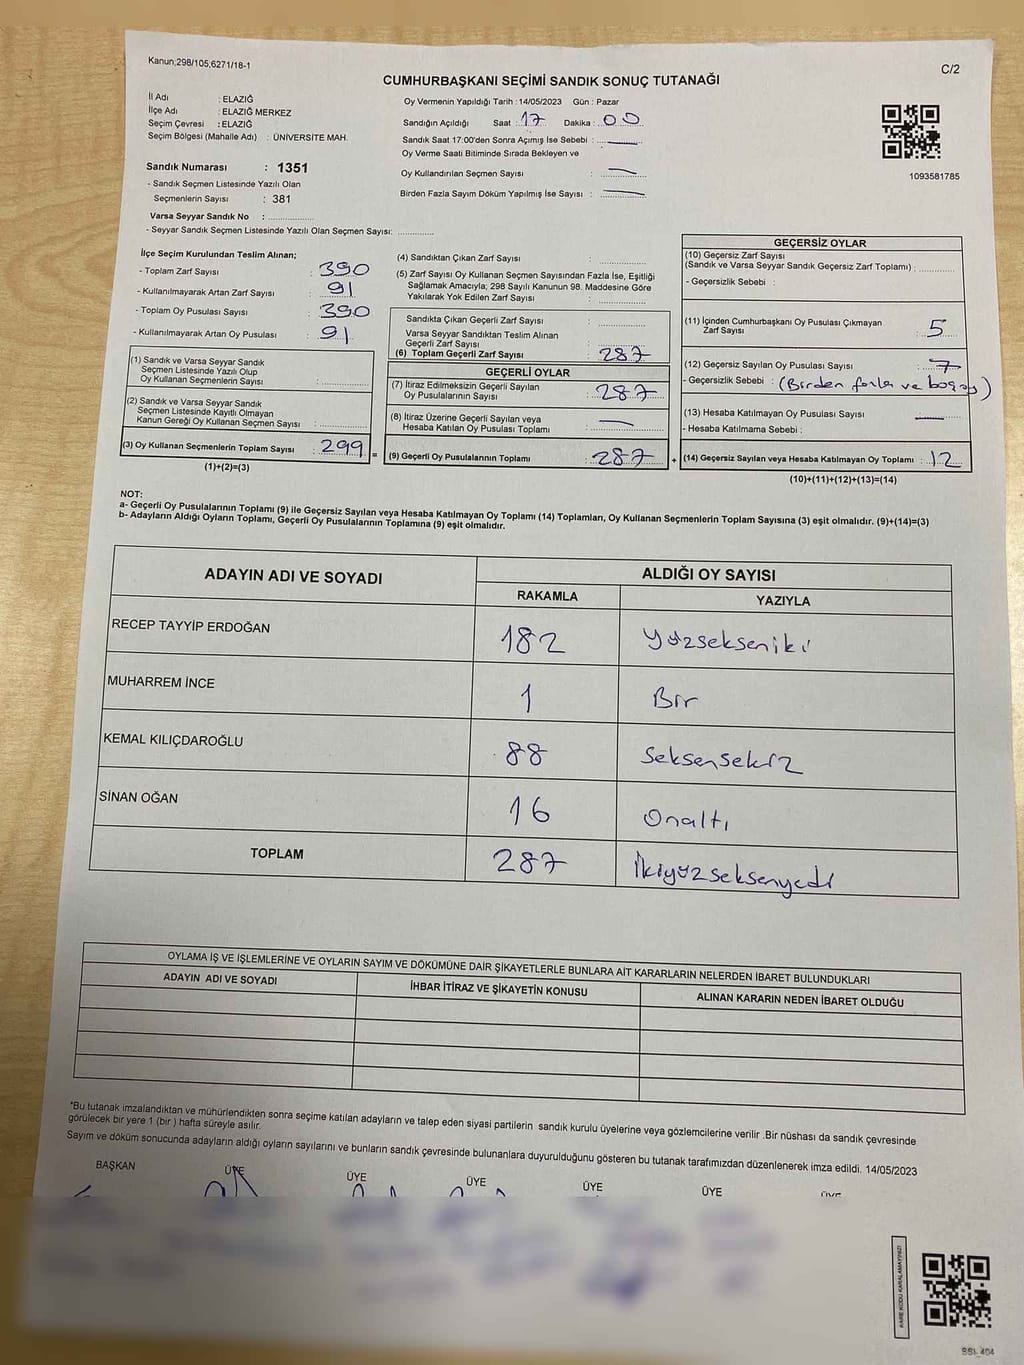 Kanun;298/105,6271/18-1
C/2
CUMHURBAŞKANI SEÇİMİ SANDIK SONUÇ TUTANAĞI
İl Adı : ELAZIĞ
İlçe Adı : ELAZIĞ MERKEZ
Seçim Çevresi : ELAZIĞ
Seçim Bölgesi (Mahalle Adı) : ÜNİVERSİTE MAH.
Sandık Numarası : 1351
- Sandık Seçmen Listesinde Yazılı Olan
Seçmenlerin Sayısı : 381
Varsa Seyyar Sandık No :
- Seyyar Sandık Seçmen Listesinde Yazılı Olan Seçmen Sayısı:
Oy Vermenin Yapıldığı Tarih : 14/05/2023 Gün : Pazar
Sandığın Açıldığı Saat : 17 Dakika : 00
Sandık Saat 17:00'den Sonra Açımış İse Sebebi : —
Oy Verme Saati Bitiminde Sırada Bekleyen ve
Oy Kullandırılan Seçmen Sayısı : —
Birden Fazla Sayım Döküm Yapılmış İse Sayısı : —
1093581785
İlçe Seçim Kurulundan Teslim Alınan;
- Toplam Zarf Sayısı : 390
- Kullanılmayarak Artan Zarf Sayısı : 91
- Toplam Oy Pusulası Sayısı : 390
- Kullanılmayarak Artan Oy Pusulası : 91
(1) Sandık ve Varsa Seyyar Sandık
Seçmen Listesinde Yazılı Olup
Oy Kullanan Seçmenlerin Sayısı :
(2) Sandık ve Varsa Seyyar Sandık
Seçmen Listesinde Kayıtlı Olmayan
Kanun Gereği Oy Kullanan Seçmen Sayısı :
(3) Oy Kullanan Seçmenlerin Toplam Sayısı : 299 =
(1)+(2)=(3)
(4) Sandıktan Çıkan Zarf Sayısı :
(5) Zarf Sayısı Oy Kullanan Seçmen Sayısından Fazla İse, Eşitliği
Sağlamak Amacıyla; 298 Sayılı Kanunun 98. Maddesine Göre
Yakılarak Yok Edilen Zarf Sayısı :
Sandıkta Çıkan Geçerli Zarf Sayısı :
Varsa Seyyar Sandıktan Teslim Alınan
Geçerli Zarf Sayısı :
(6) Toplam Geçerli Zarf Sayısı : 287
GEÇERLİ OYLAR
(7) İtiraz Edilmeksizin Geçerli Sayılan
Oy Pusulalarının Sayısı : 287
(8) İtiraz Üzerine Geçerli Sayılan veya
Hesaba Katılan Oy Pusulası Toplamı : —
(9) Geçerli Oy Pusulalarının Toplamı : 287 +
GEÇERSİZ OYLAR
(10) Geçersiz Zarf Sayısı
(Sandık ve Varsa Seyyar Sandık Geçersiz Zarf Toplamı) :
- Geçersizlik Sebebi :
(11) İçinden Cumhurbaşkanı Oy Pusulası Çıkmayan
Zarf Sayısı : 5
(12) Geçersiz Sayılan Oy Pusulası Sayısı : 7
- Geçersizlik Sebebi : (Birden fazla ve boş oy)
(13) Hesaba Katılmayan Oy Pusulası Sayısı : —
- Hesaba Katılmama Sebebi :
(14) Geçersiz Sayılan veya Hesaba Katılmayan Oy Toplamı : 12
(10)+(11)+(12)+(13)=(14)
NOT:
a- Geçerli Oy Pusulalarının Toplamı (9) ile Geçersiz Sayılan veya Hesaba Katılmayan Oy Toplamı (14) Toplamları, Oy Kullanan Seçmenlerin Toplam Sayısına (3) eşit olmalıdır. (9)+(14)=(3)
b- Adayların Aldığı Oyların Toplamı, Geçerli Oy Pusulalarının Toplamına (9) eşit olmalıdır.
ADAYIN ADI VE SOYADI
ALDIĞI OY SAYISI
RAKAMLA YAZIYLA
RECEP TAYYİP ERDOĞAN 182 Yüzsekseniki
MUHARREM İNCE 1 Bir
KEMAL KILIÇDAROĞLU 88 Seksensekiz
SİNAN OĞAN 16 Onaltı
TOPLAM 287 İkiyüzseksenyedi
OYLAMA İŞ VE İŞLEMLERİNE VE OYLARIN SAYIM VE DÖKÜMÜNE DAİR ŞİKAYETLERLE BUNLARA AİT KARARLARIN NELERDEN İBARET BULUNDUKLARI
ADAYIN ADI VE SOYADI İHBAR İTİRAZ VE ŞİKAYETİN KONUSU ALINAN KARARIN NEDEN İBARET OLDUĞU
*Bu tutanak imzalandıktan ve mühürlendikten sonra seçime katılan adayların ve talep eden siyasi partilerin sandık kurulu üyelerine veya gözlemcilerine verilir .Bir nüshası da sandık çevresinde
görülecek bir yere 1 (bir ) hafta süreyle asılır.
Sayım ve döküm sonucunda adayların aldığı oyların sayılarını ve bunların sandık çevresinde bulunanlara duyurulduğunu gösteren bu tutanak tarafımızdan düzenlenerek imza edildi. 14/05/2023
BAŞKAN ÜYE ÜYE ÜYE ÜYE ÜYE ÜYE
KARE KODU KARALAMAYINIZ!